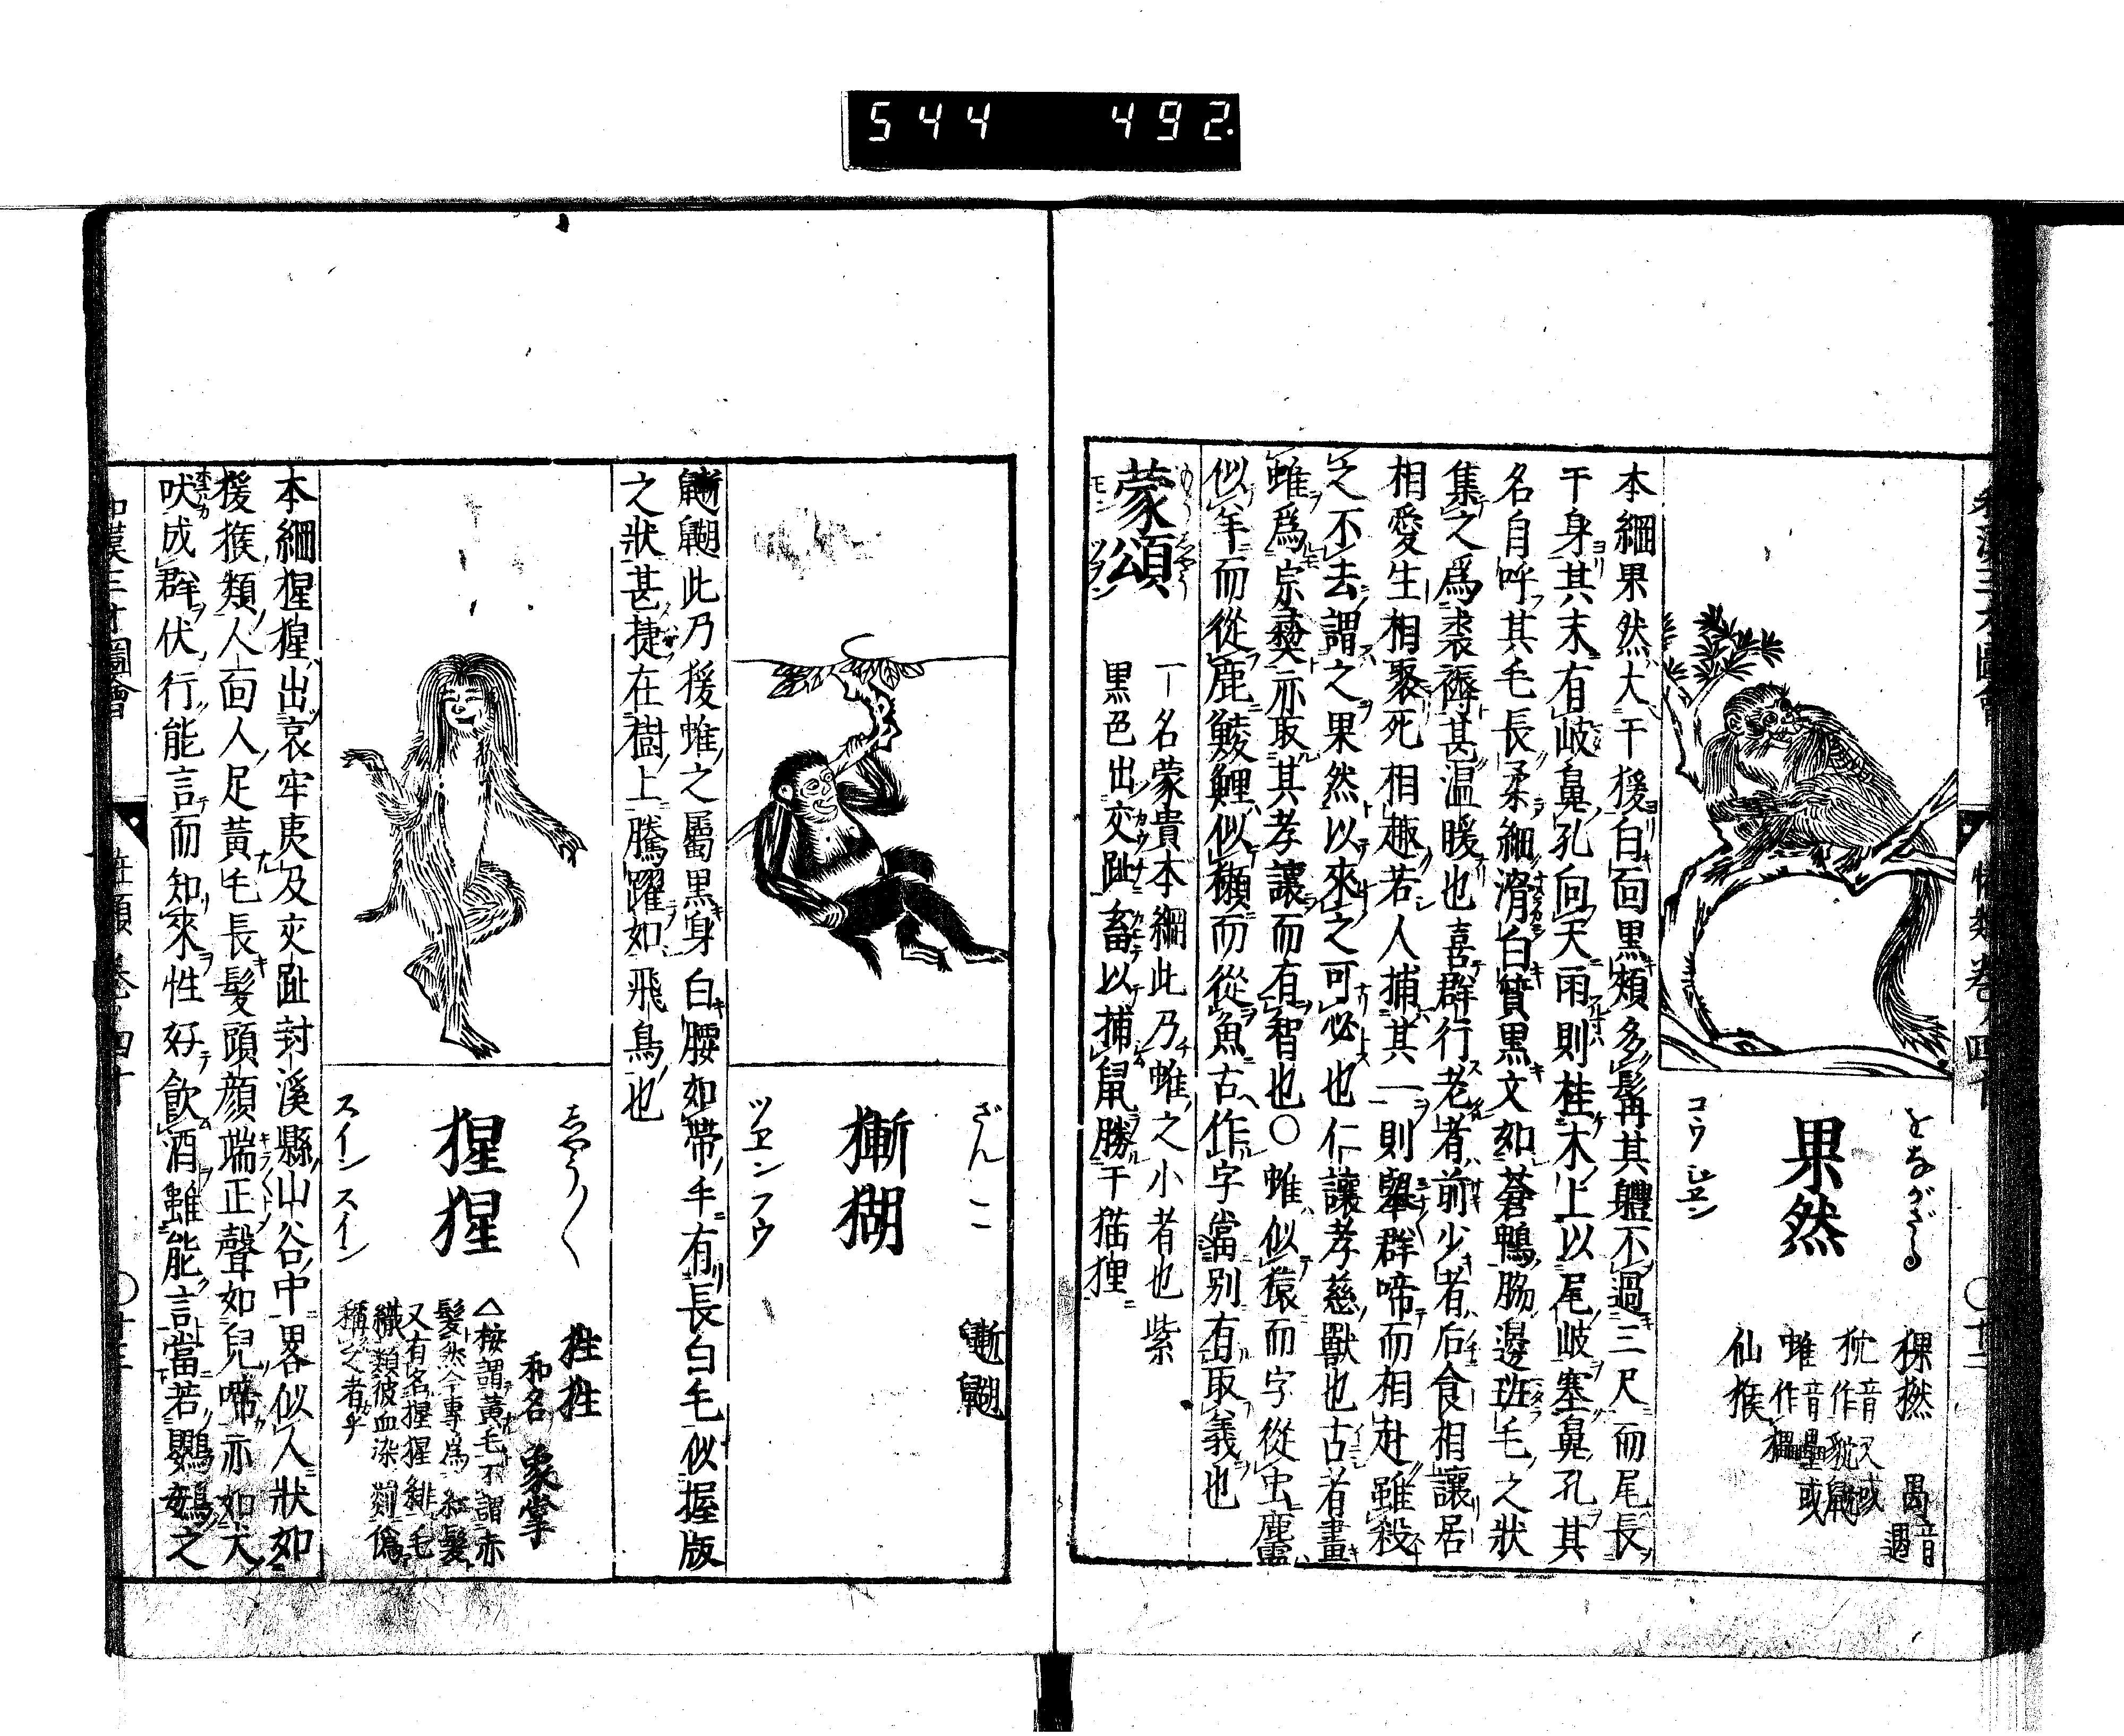 544 492.
和漢三才圖會
恠類 卷ノ四十
をながざる
果然
コウ ジヱン
猓𤡮 禺音遇
狖音又或作貁鼬
蜼音壘或作𤢹
仙猴
本綱果然大于猨白面黒頰多髯其體不過三尺而尾長
于身其末有岐鼻孔向天雨則挂木上以尾岐塞鼻孔其
名自呼其毛長柔細滑白質黒文如蒼鴨脇邊斑毛之狀
集之爲裘褥甚温暖也喜群行老者前少者后食相讓居
相愛生相聚死相赴若人捕其一則舉群啼而相赴雖殺
之不去謂之果然以來之可必也仁讓孝慈獸也古者畫
蜼爲宗彛亦取其孝讓而有智也〇蜼似猿而字從虫麈
似羊而從鹿鯪鯉似獺而從魚古作字當別有取義也
もうしやう
蒙頌
モン ヅラン
一名蒙貴本綱此乃蜼之小者也紫
黒色出交趾畜以捕鼠勝于猫狸
ざんこ
獑猢
ツヱンフウ
䶮䶅此乃猨蜼之屬黒身白腰如帶手有長白毛似握版
之狀甚捷在樹上騰躍如飛鳥也
しやう〱
猩猩
スイン スイン
狌狌
和名 象掌
△按謂黄毛不謂赤
髮然今專爲紅髮
又有名猩猩緋毛
織類彼血染𦋺偽
稱之者乎
本綱猩猩出哀牢夷及交趾封溪縣山谷中畧似人狀如
猨猴類人面人足黄毛長髮頭顔端正聲如兒啼亦如犬
吠成群伏行能言而知來性好飲酒雖能言當若鸚鵡之
和漢三才圖會
卷ノ四十